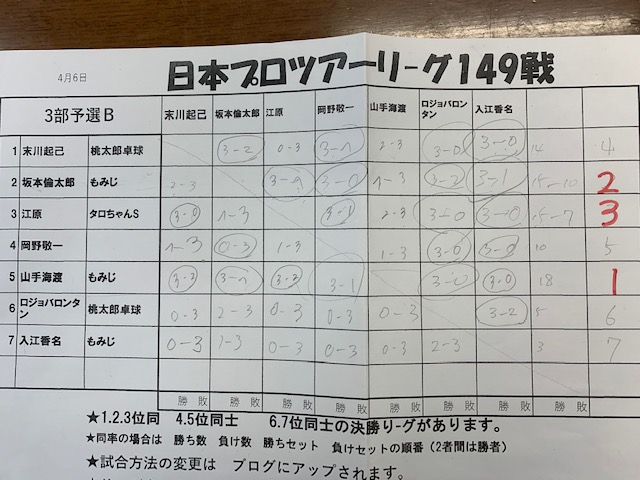 4月6日
日本プロツアーリーグ149戦
3部予選B 末川起己 坂本倫太郎 江原 岡野敬一 山手海渡 ロジョバロンタン 入江香名
1 末川起己 桃太郎卓球 3-2 0-3 3-1 2-3 3-0 3-0 14 4
2 坂本倫太郎 もみじ 2-3 3-1 3-0 1-3 3-2 3-1 15-10 2
3 江原 タロちゃんS 3-0 1-3 3-1 2-3 3-0 3-0 15-7 3
4 岡野敬一 1-3 0-3 1-3 1-3 3-0 3-0 10 5
5 山手海渡 もみじ 3-2 3-1 3-2 3-1 3-0 3-0 18 1
6 ロジョバロンタン 桃太郎卓球 0-3 2-3 0-3 0-3 0-3 3-2 5 6
7 入江香名 もみじ 0-3 1-3 0-3 0-3 0-3 2-3 3 7
勝 敗 勝 敗 勝 敗 勝 敗 勝 敗 勝 敗 勝 敗
★1.2.3位同 4.5位同士 6.7位同士の決勝りーグがあります。
★同率の場合は 勝ち数 負け数 勝ちセット 負けセットの順番（2者間は勝者）
★試合方法の変更は ブログにアップされます。